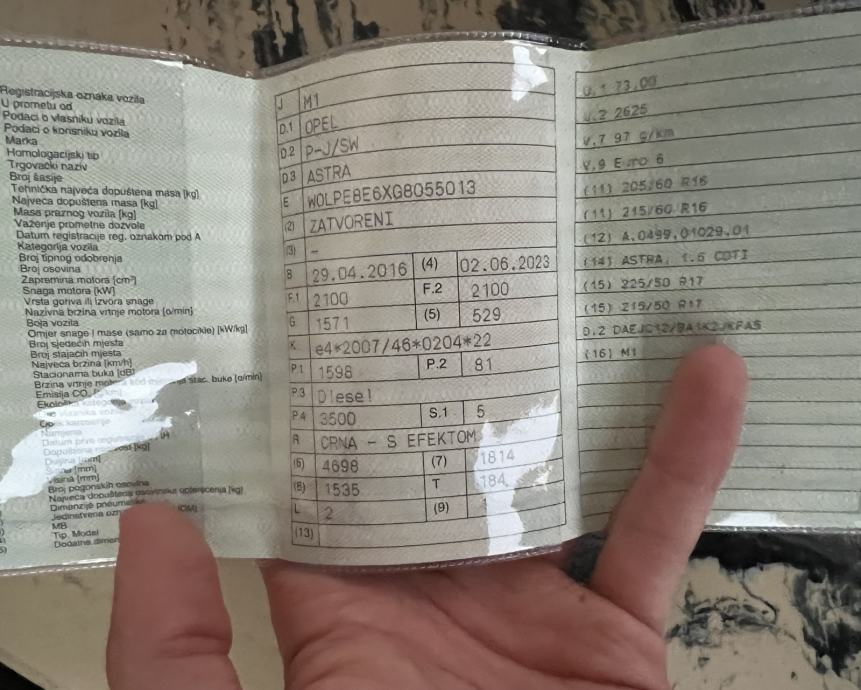 Registracijska oznaka vozila
U prometu od
Podaci o vlasniku vozila
Podaci o korisniku vozila
Marka
Homologacijski tip
Trgovački naziv
Broj šasije
Tehnička najveća dopuštena masa [kg]
Najveća dopuštena masa [kg]
Masa praznog vozila [kg]
Važenje prometne dozvole
Datum registracije reg. oznakom pod A
Kategorija vozila
Broj tipnog odobrenja
Broj osovina
Zapremina motora [cm³]
Snaga motora [kW]
Vrsta goriva ili izvora snage
Nazivna brzina vrtnje motora [o/min]
Boja vozila
Omjer snage i mase (samo za motocikle) [kW/kg]
Broj sjedećih mjesta
Broj stajaćih mjesta
Najveća brzina [km/h]
Stacionarna buka [dB]
Brzina vrtnje stac. buke [o/min]
Emisija CO₂
[mm]
Visina [mm]
Broj pogonskih osovina
Najveća dopuštena osovinska opterećenja [kg]
Dimenzije
Jedinstvena
MB
Tip, Model
J M1
D.1 OPEL
D.2 P-J/SW
D.3 ASTRA
E W0LPE8E6XG8055013
(2) ZATVORENI
(3) -
B 29.04.2016 (4) 02.06.2023
F.1 2100 F.2 2100
G 1571 (5) 529
K e4*2007/46*0204*22
P.1 1598 P.2 81
P.3 Diesel
P.4 3500 S.1 5
R CRNA - S EFEKTOM
(6) 4698 (7) 1814
(8) 1535 T 184
L 2 (9)
(13)
U.1 73,00
U.2 2625
V.7 97 g/km
V.9 Euro 6
(11) 205/60 R16
(11) 215/60 R16
(12) A.0499.01029.01
(14) ASTRA, 1.6 CDTI
(15) 225/50 R17
(15) 215/50 R17
D.2
(16) M1